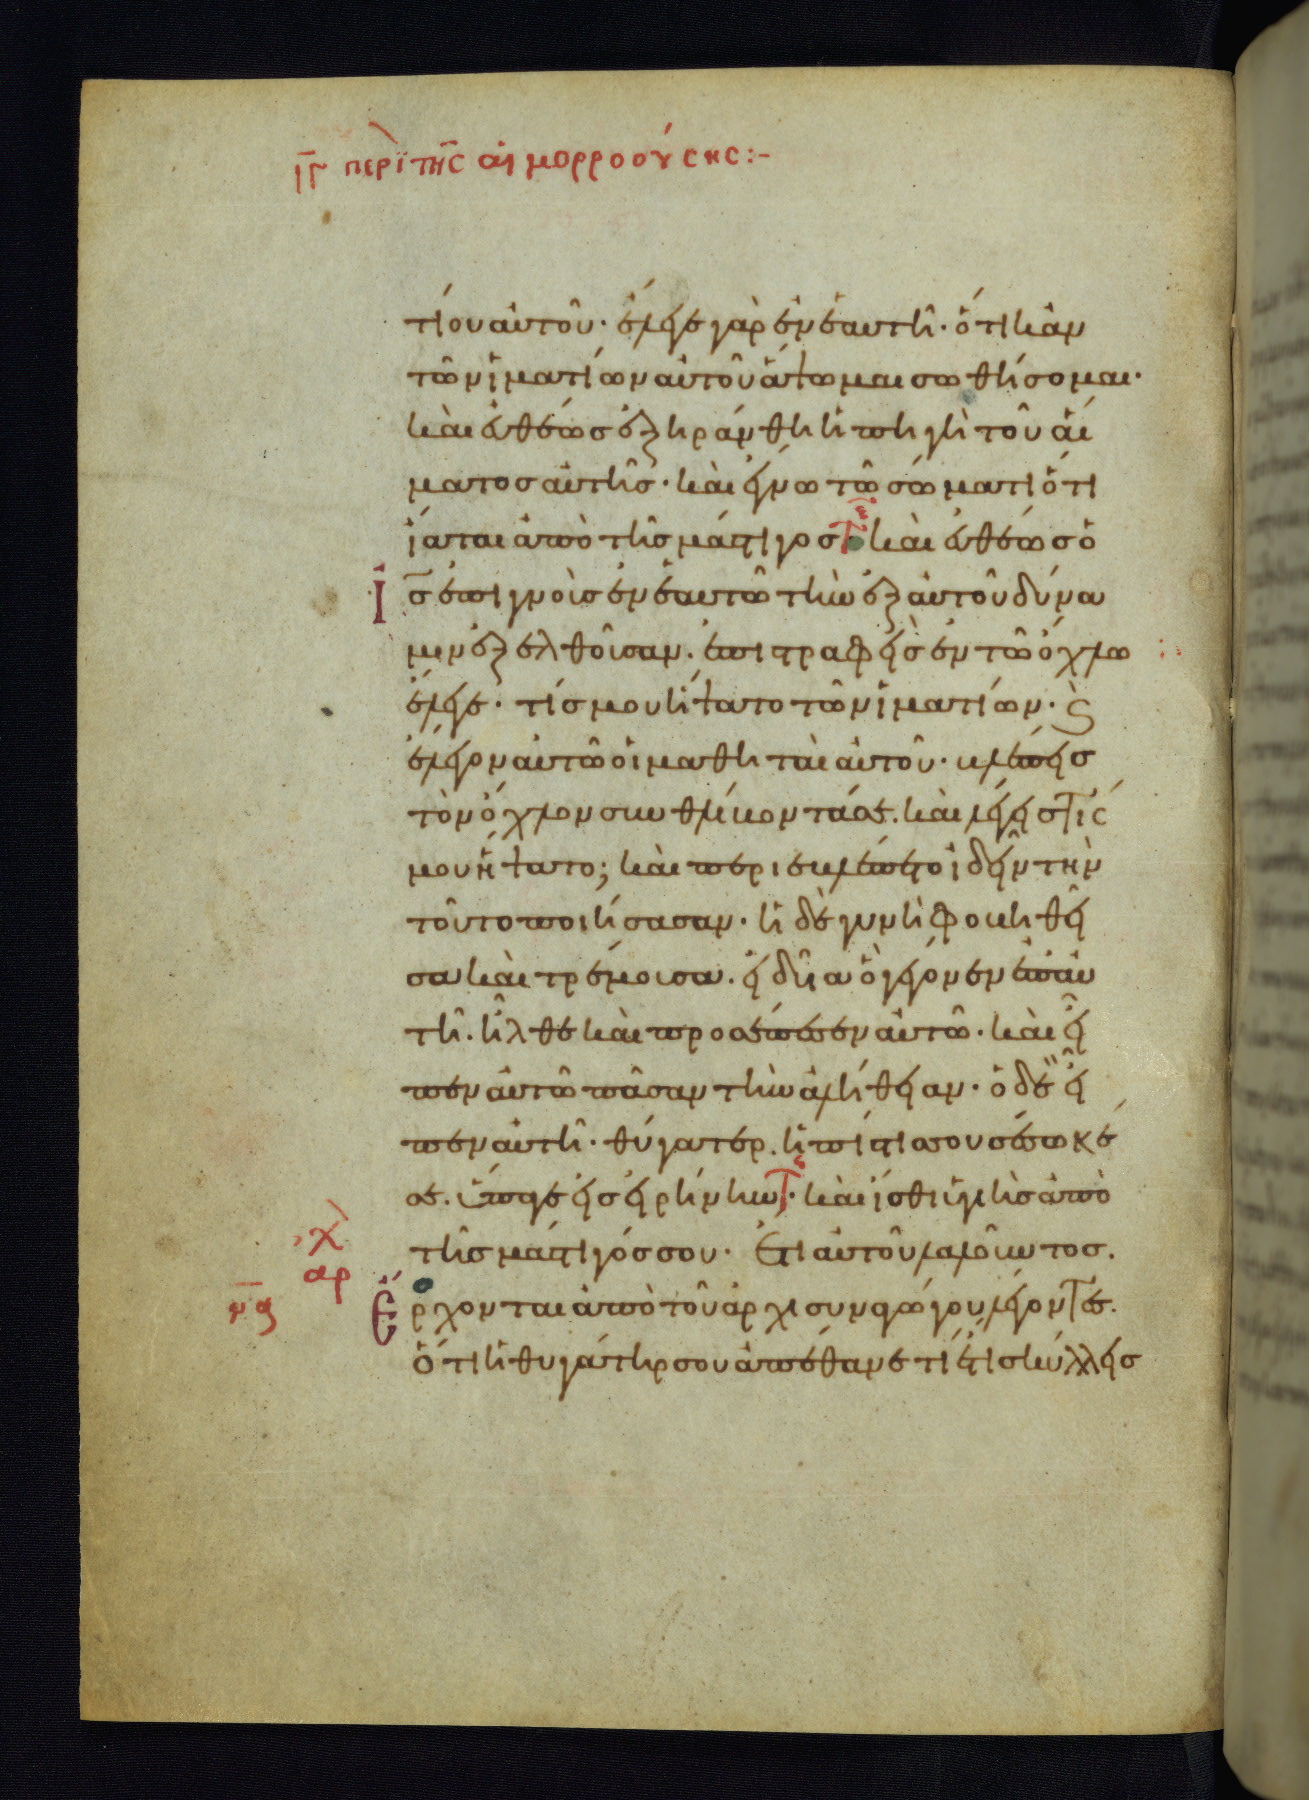 ιγ περὶ τῆς αἱμορροούσης:-
τίου αὐτοῦ· ἔλεγε γὰρ ἐν ἑαυτῆ· ὅτι κἂν
τῶν ἱματίων αὐτοῦ ἅψωμαι σωθήσομαι·
καὶ εὐθέως ἐξηράνθη ἡ πηγὴ τοῦ αἵ
ματος αὐτῆς· καὶ ἔγνω τῶ σώματι ὅτι
ἴαται ἀπὸ τῆς μάστιγος· καὶ εὐθέως ὁ
ις ἐπιγνοὺς ἐν ἑαυτῶ τὴν ἐξ αὐτοῦ δύνα
μιν ἐξελθοῦσαν. ἐπιστραφεὶς ἐν τῶ ὄχλω
ἔλεγε· τίς μου ἥψατο τῶν ἱματίων· ϛ
ἔλεγον αὐτῶ οἱ μαθηταὶ αὐτοῦ· βλέπεις
τὸν ὄχλον συνθλίβοντά σε. καὶ λέγεις τίς
μου ἥψατο; καὶ περιεβλέπετο ἰδεῖν τὴν
τοῦτο ποιήσασαν· ἡ δὲ γυνὴ φοβηθεῖ
σα καὶ τρέμουσα. εἰδυῖα ὃ γέγονεν ἐπ' αὐ
τῆ. ἦλθε καὶ προσέπεσεν αὐτῶ. καὶ εἶ
πεν αὐτῶ πᾶσαν τὴν ἀλήθειαν· ὁ δὲ εἶ
πεν αὐτῆ· θύγατερ. ἡ πίστις σου σέσωκέ
σε. ὕπαγε εἰς εἰρήνην· καὶ ἴσθι ὑγιὴς ἀπὸ
τῆς μάστιγός σου· Ἔτι αὐτοῦ λαλοῦντος.
αρχ
Ἔρχονται ἀπὸ τοῦ ἀρχισυναγώγου λέγοντες.
ὅτι ἡ θυγάτηρ σου ἀπέθανε τί ἔτι σκύλλεις